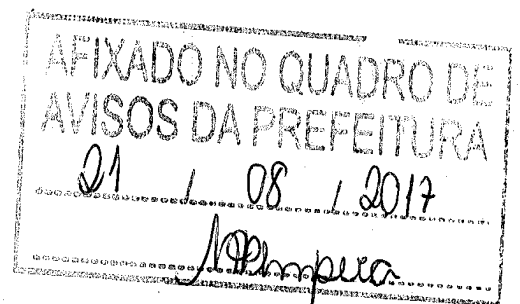 AFIXADO NO QUADRO DE
AVISOS DA PREFEITURA
21 / 08 / 2017